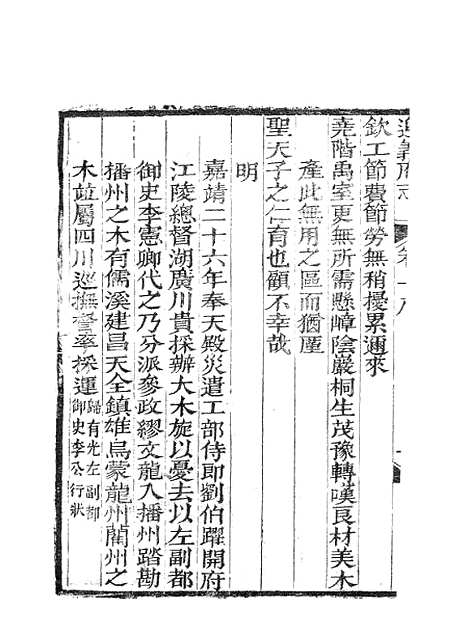 遵義府志 卷十八
欽工節費節勞無稍擾累邇來
堯階禹室更無所需懸嶂陰巖桐生茂豫轉嘆良材美木
產此無用之區而猶厪
聖天子之仁育也顧不幸哉
明
嘉靖二十六年奉天殿災遣工部侍郎劉伯躍開府
江陵總督湖廣川貴採辦大木旋以憂去以左副都
御史李憲卿代之乃分派參政繆文龍入播州踏勘
播州之木有儒溪建昌天全鎮雄烏蒙龍州藺州之
木並屬四川巡撫督率採運歸有光左副都
御史李公行狀